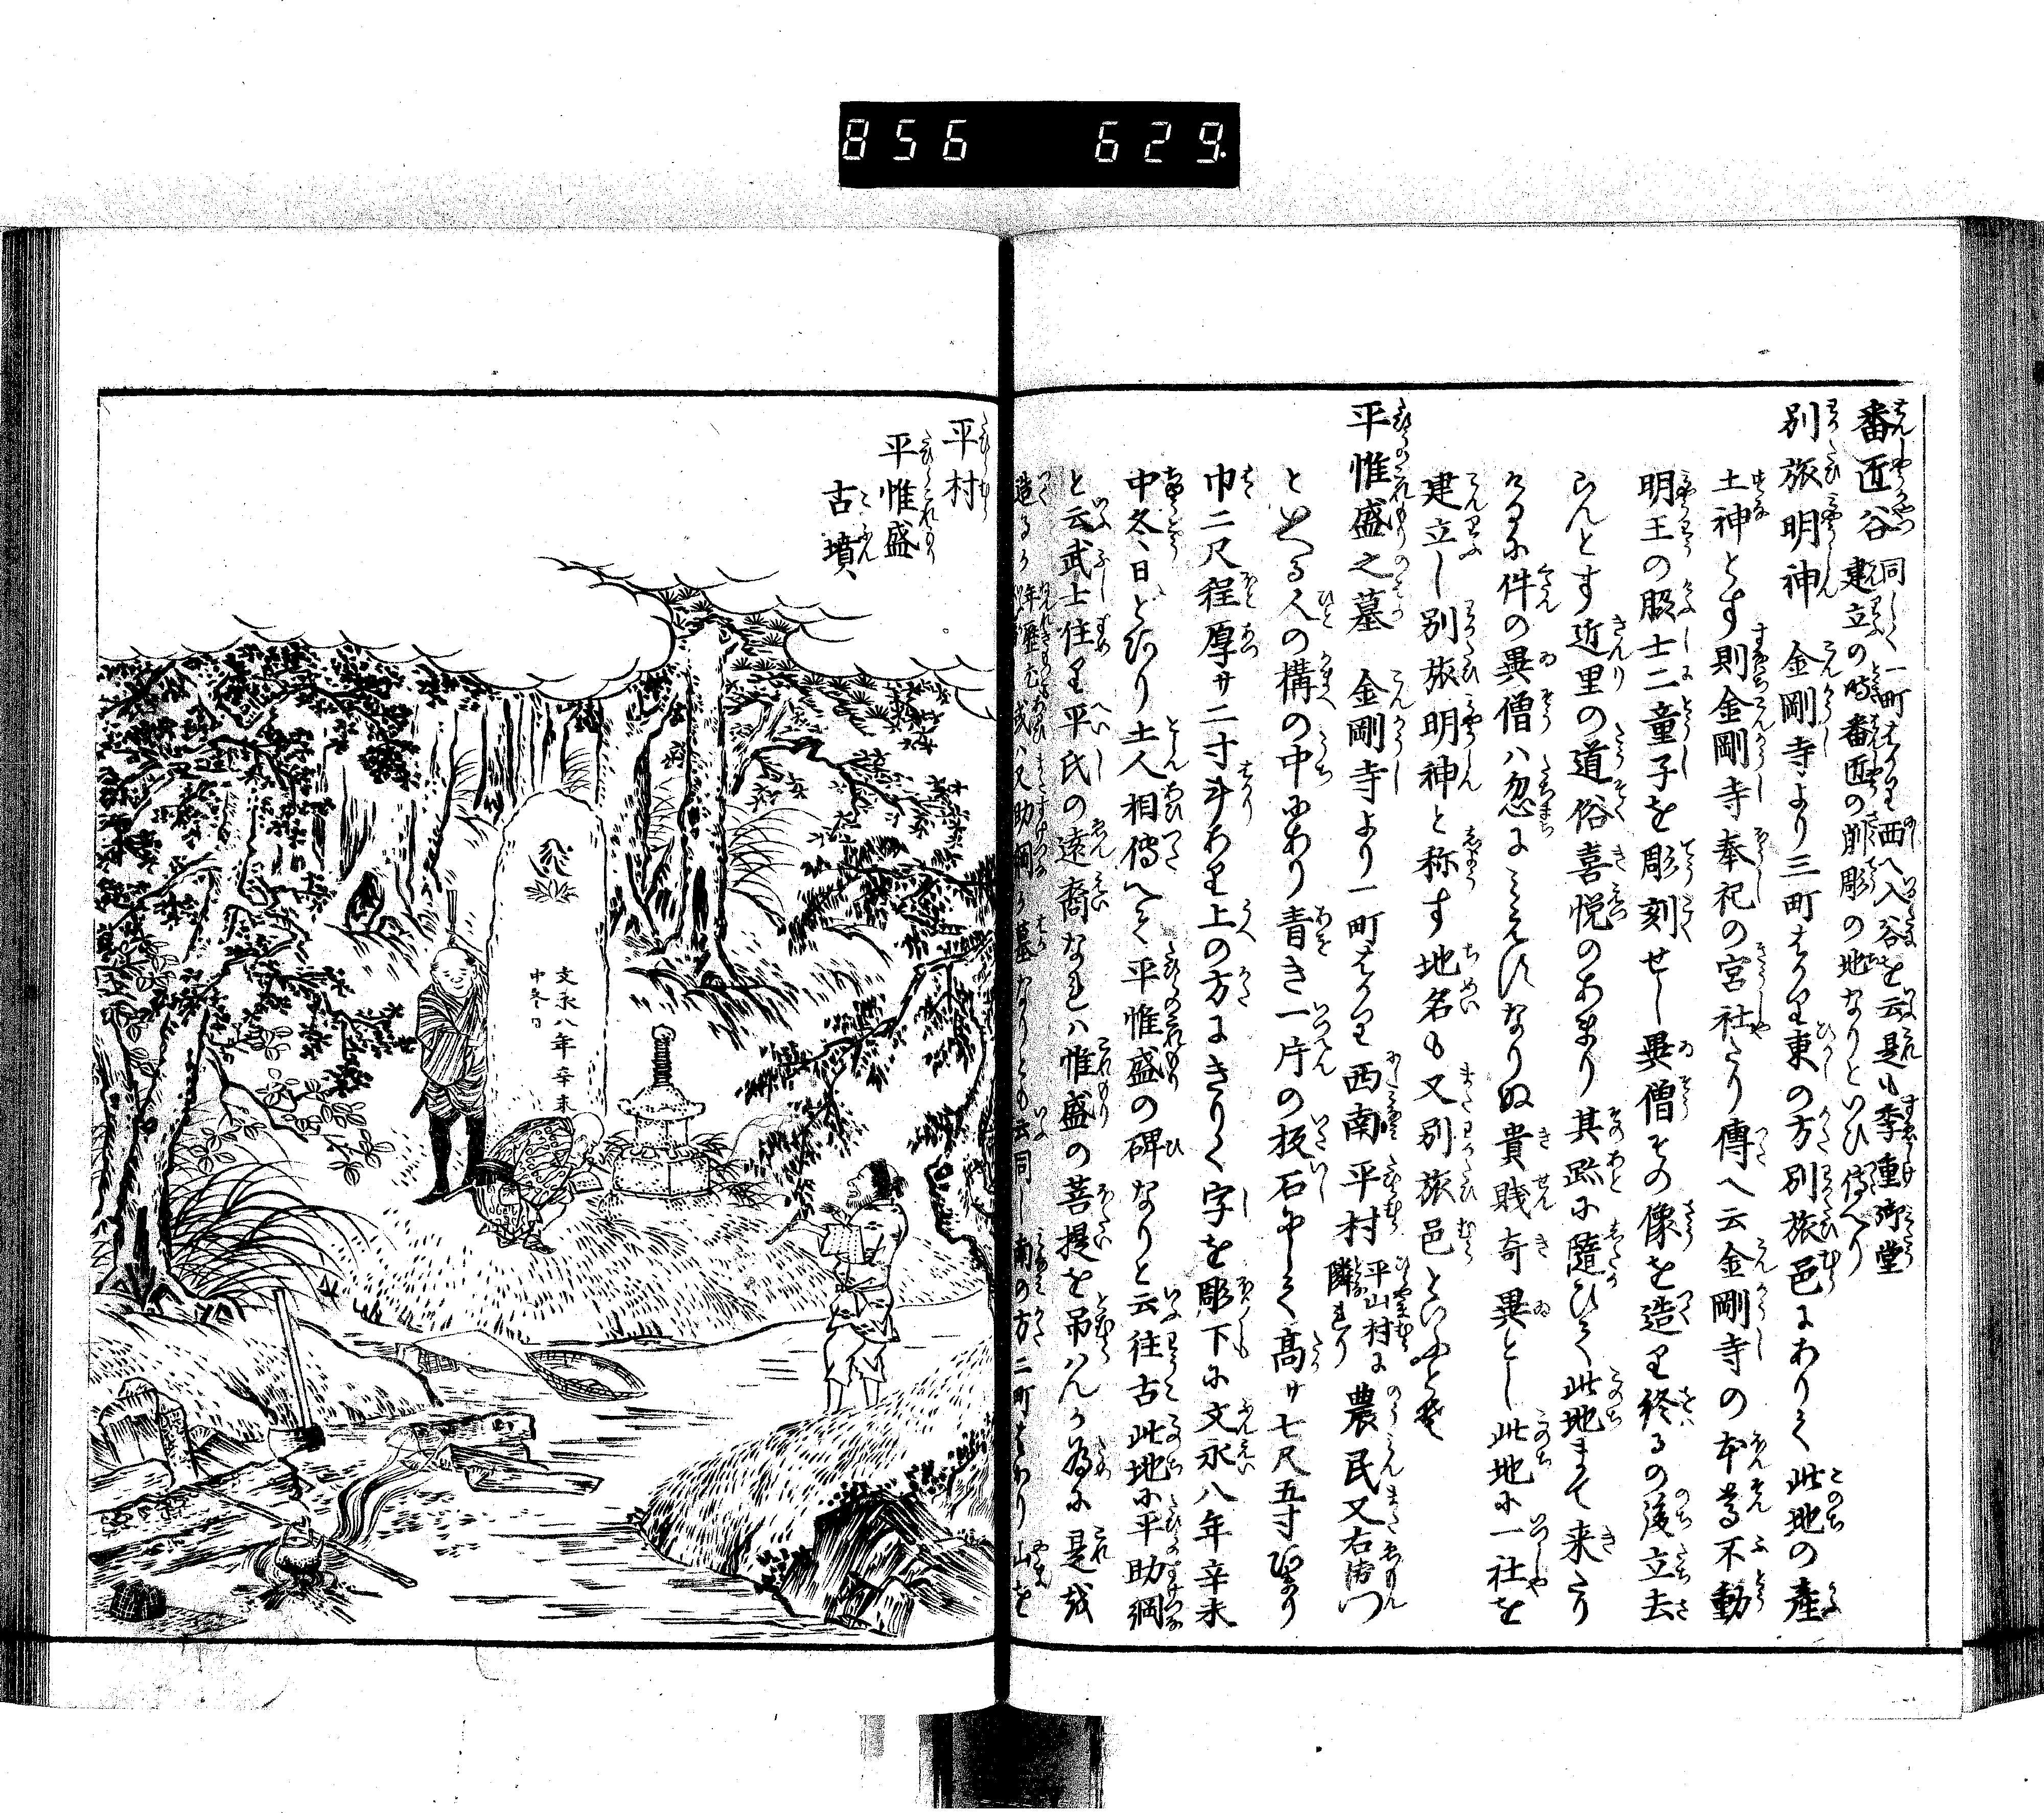 856 629
番匠谷 同しく一町はかり西へ入谷を云是も季重御堂
建立の時番匠の削彫の地なりといひ傳へり
別旅明神 金剛寺より三町はかり東の方別旅邑にありて此地の產
土神とす則金剛寺奉祀の宮社たり傳へ云金剛寺の本尊不動
明王の脇士二童子を彫刻せし異僧その像を造り終るの後立去
らんとす近里の道俗喜悅のあまり其跡に隨ひて此地まて来たり
けるに件の異僧ハ忽にみえすなりぬ貴賤奇異とし此地に一社を
建立し別旅明神と称す地名も又別旅邑といふとそ
平惟盛之墓 金剛寺より一町はかり西南平村 平山村に隣れり 農民又右衛門
といへる人の構の中にあり青き一片の板石にして高サ七尺五寸あり
巾二尺程厚サ二寸斗あり上の方にきりく字を彫下に文永八年辛未
中冬日とあり土人相傳へて平惟盛の碑なりと云往古此地に平助綱
と云武士住り平氏の遠裔なれハ惟盛の菩提を吊ハんか為に是を
造るか 年歴も 或ハ又助綱か墓なりとも云同し南の方二町はかり山を
平村
平惟盛
古墳
文永八年辛未
中冬日